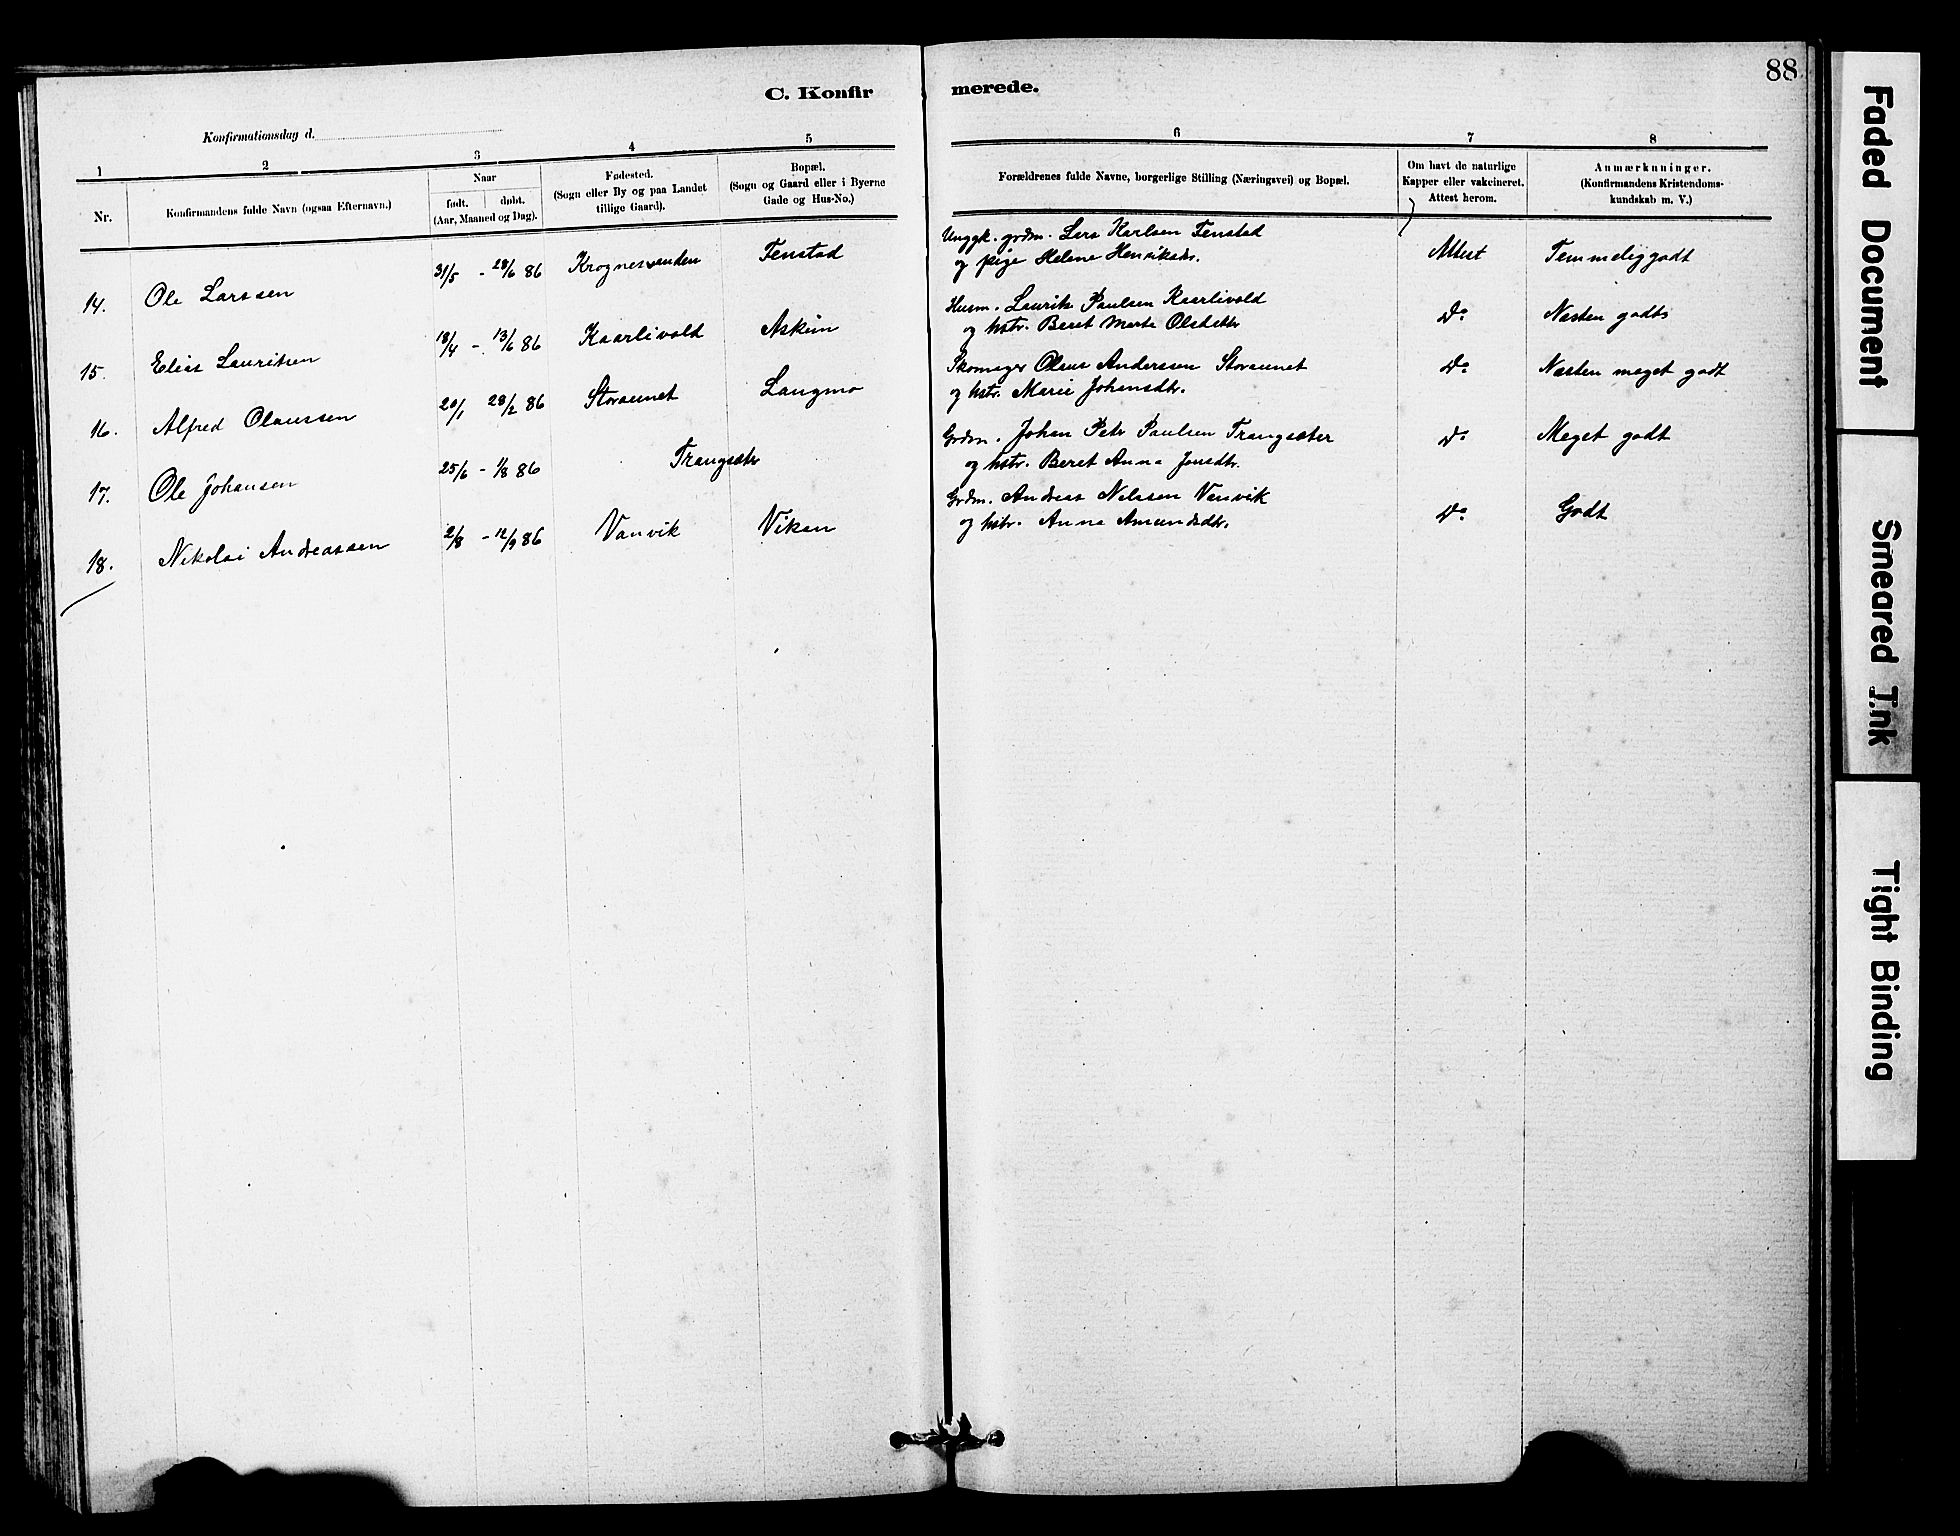 C. Konfirmerede.
88
Konfirmationsdag d.
1 2 3 4 5 6 7 8
Nr.
Konfirmandens fulde Navn (ogsaa Efternavn.)
Naar
født. døbt.
(Aar, Maaned og Dag).
Fødested.
(Sogn eller By og paa Landet
tillige Gaard).
Bopæl.
(Sogn og Gaard eller i Byerne
Gade og Hus-No.)
Forældrenes fulde Navne, borgerlige Stilling (Næringsvei) og Bopæl.
Om havt de naturlige
Kopper eller vakcineret.
Attest herom.
Anmærkninger.
(Konfirmandens Kristendoms-
kundskab m. V.)
14. Ole Larssen 31/5 - 28/6 86 Krognessanden Fenstad Ungk. grdm. Lars Karlsen Fenstad Attest Temmelig godt
og pige Helene Henriksdr.
15. Elias Lauritsen 18/4 - 13/6 86 Kaarlivold Askim Husm. Laurits Paulsen Kaarlivold Do Næsten godt
og hstr. Beret Marta Olsdatter
16. Alfred Olaussen 20/1 28/2 86 Storaunet Langmo Skomager Olaus Anderssen Storaunet Do Næsten meget godt
og hstr. Marie Johansdtr.
17. Ole Johansen 25/6 - 1/8 86 Trangsæter Grdm. Johan Petr Paulsen Trangsæter Do Meget godt
og hstr. Beret Anna Jonsdtr.
18. Nikolai Andreassen 2/8 - 12/9 86 Vanvik Viken Grdm. Andreas Nilssen Vanvik Do Godt
og hstr. Anna Amundsdtr.
Faded Document
Smeared Ink
Tight Binding